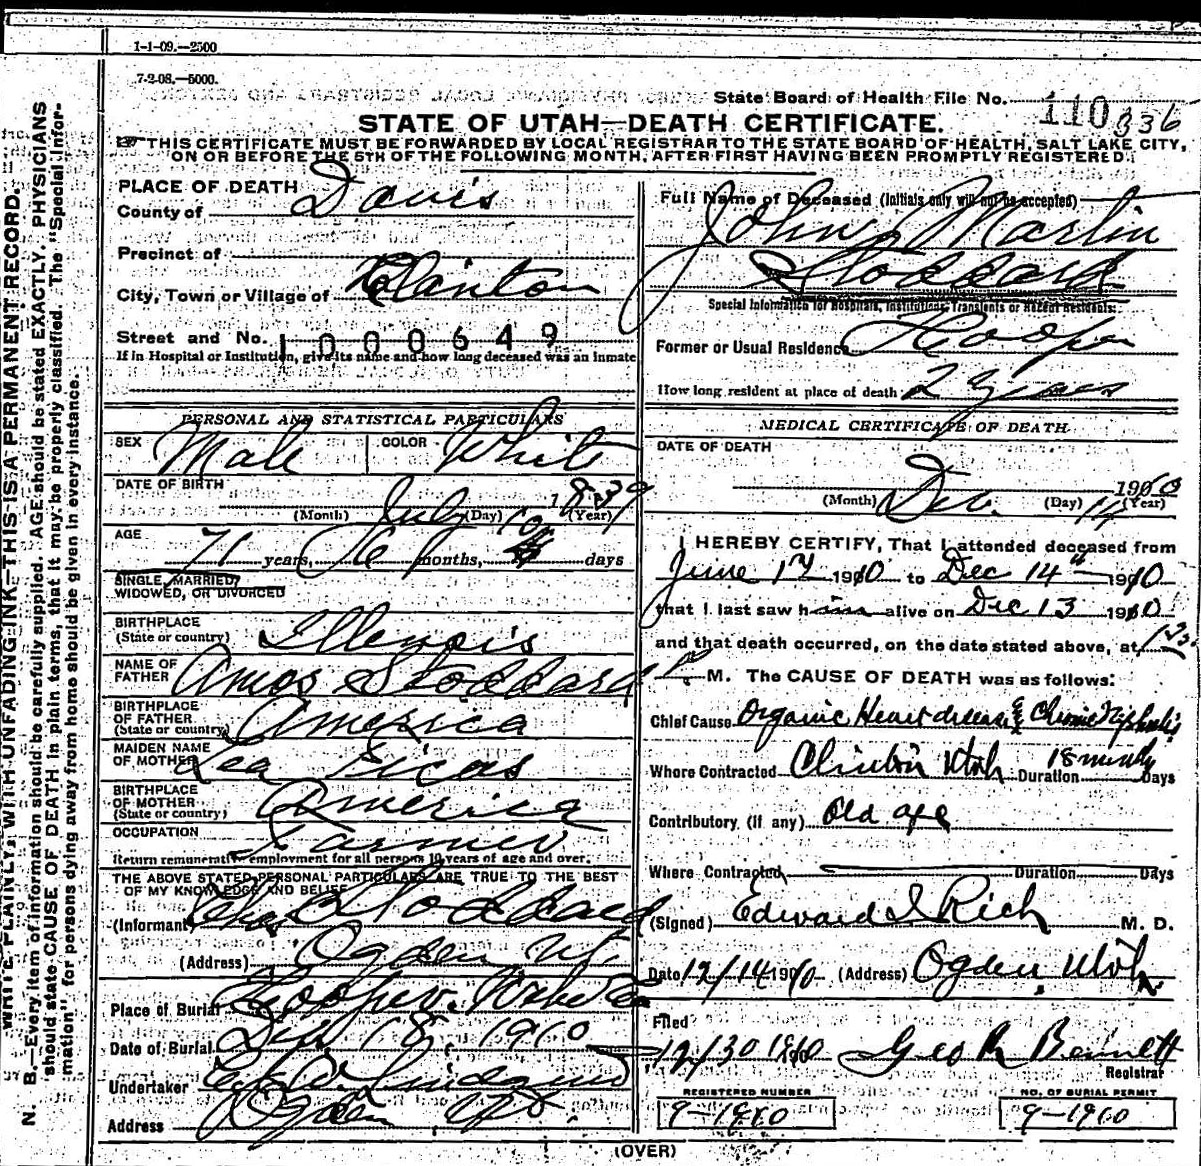 1-1-09.—2500
7-2-08.—5000.
State Board of Health File No. 110 336
STATE OF UTAH—DEATH CERTIFICATE.
THIS CERTIFICATE MUST BE FORWARDED BY LOCAL REGISTRAR TO THE STATE BOARD OF HEALTH, SALT LAKE CITY,
ON OR BEFORE THE 5TH OF THE FOLLOWING MONTH, AFTER FIRST HAVING BEEN PROMPTLY REGISTERED.
WRITE PLAINLY, WITH UNFADING INK—THIS IS A PERMANENT RECORD.
N. B.—Every item of information should be carefully supplied. AGE should be stated EXACTLY. PHYSICIANS
should state CAUSE OF DEATH in plain terms, that it may be properly classified. The "Special Infor-
mation" for persons dying away from home should be given in every instance.
PLACE OF DEATH
County of Davis
Precinct of
City, Town or Village of Clinton
Street and No. 1000649
If in Hospital or Institution, give its name and how long deceased was an inmate
PERSONAL AND STATISTICAL PARTICULARS
SEX Male COLOR White
DATE OF BIRTH
July 1839
(Month) (Day) (Year)
AGE 71 years, months, days
SINGLE, MARRIED,
WIDOWED, OR DIVORCED
BIRTHPLACE
(State or country) Illenois
NAME OF
FATHER Amos Stoddard
BIRTHPLACE
OF FATHER
(State or country) America
MAIDEN NAME
OF MOTHER
BIRTHPLACE
OF MOTHER
(State or country) America
OCCUPATION Farmer
Return remunerative employment for all persons 10 years of age and over.
THE ABOVE STATED PERSONAL PARTICULARS ARE TRUE TO THE BEST
OF MY KNOWLEDGE AND BELIEF
(Informant) Chas Stoddard
(Address) Ogden Ut.
Place of Burial Hooper. Weber Co
Date of Burial 18, 1910
Undertaker
Address Ogden Ut.
Full Name of Deceased (Initials only will not be accepted)
John Martin
Stoddard
Special Information for Hospitals, Institutions, Transients or Recent Residents:
Former or Usual Residence Hooper
How long resident at place of death 2 years
MEDICAL CERTIFICATE OF DEATH
DATE OF DEATH
Dec. 14 1910
(Month) (Day) (Year)
I HEREBY CERTIFY, That I attended deceased from
June 1910 to Dec 14th 1910
that I last saw him alive on Dec 13 1910
and that death occurred, on the date stated above, at
M. The CAUSE OF DEATH was as follows:
Chief Cause Organic Heart disease & Chronic Nephritis
Where Contracted Clinton Utah Duration 18 months Days
Contributory (if any) Old age
Where Contracted Duration Days
(Signed) Edward I Rich M. D.
Date 12/14 1910 (Address) Ogden, Utah
Filed
12/30 1910 Geo R Bennett
Registrar
REGISTERED NUMBER
9-1910
NO. OF BURIAL PERMIT
9-1910
(OVER)